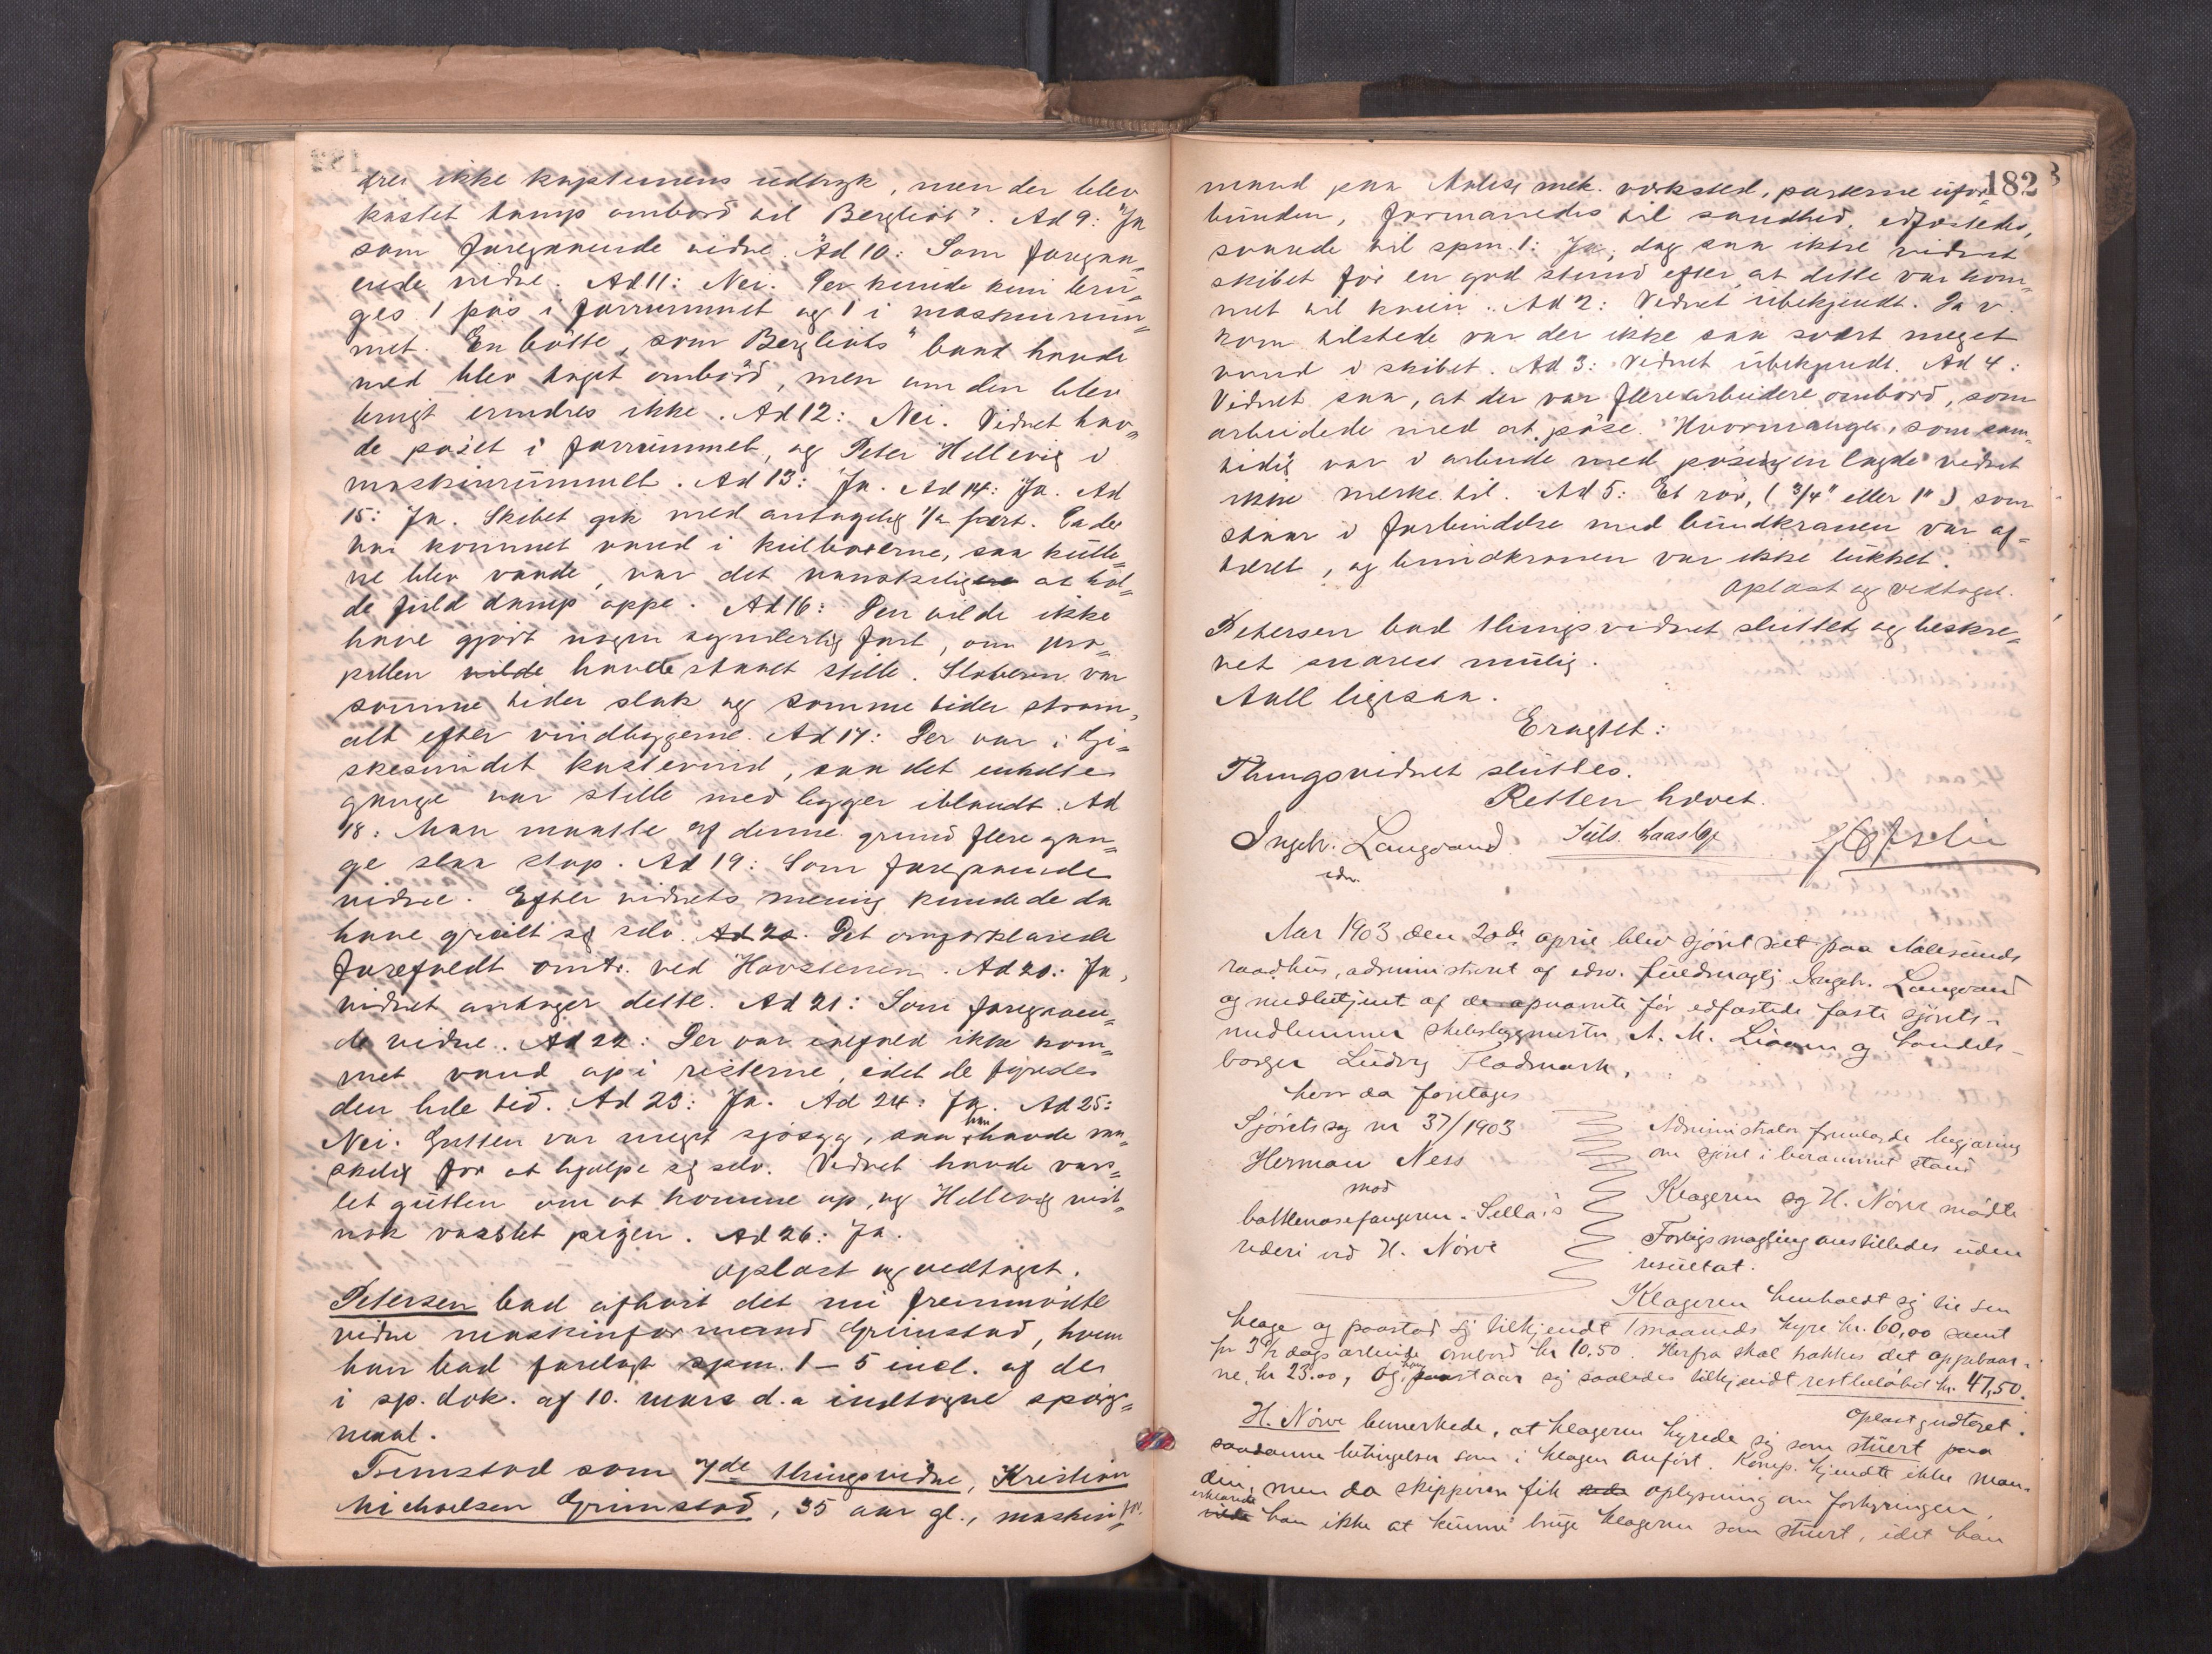 drer ikke kapteinens udtryk, men der blev
kastet kamp ombord til "Bergliot". Ad 9: Ja
som foregaaende vidne. Ad 10: Som foregaa-
ende vidne. Ad 11: Nei. Der kunde kun bru-
ges 1 pøs i forrummet og 1 i maskinrum-
met. En bøtte, som "Bergliots" baat havde
med blev taget ombord, men om den blev
brugt erindres ikke. Ad 12: Nei. Vidnet hav-
de pøset i forrummet, og Peter Hellevig i
maskinrummet. Ad 13: Ja. Ad 14: Ja. Ad
15: Ja. Skibet gik med antagelig 1/2 fart. Da der
var kommet vand i kulboxerne, saa kulle-
ne blev vaade, var det vanskelig at hol-
de fuld damp oppe. Ad 16: Den vilde ikke
have gjort nogen synderlig fart, om pro-
pellen vilde havde staaet stille. Slæberen var
somme tider slak og somme tider stram,
alt efter vindbyggerne. Ad 17: Der var i Gi-
skesundet kastevind, saa det enkelte
gange var stille med bygger iblandt. Ad
18: Man maatte af denne grund flere gan-
ge slaa stop. Ad 19: Som foregaaende
vidne. Efter vidnets mening kunde de da
have greiet sig selv. Ad 20. Det omforklarede
forefaldt omtr. ved Havstenen. Ad 20: Ja,
vidnet antager dette. Ad 21: Som foregaaen-
de vidne. Ad 22: Der var ialfald ikke kom-
met vand op i risterne, idet de fyrede
den hele tid. Ad 23: Ja. Ad 24: Ja. Ad 25:
Nei. Gutten var meget sjøsyg, saa han havde van-
skelig for at hjælpe sig selv. Vidnet havde vars-
let gutten om at komme op, og Hellevig vist-
nok varslet pigen. Ad 26: Ja.
Oplæst og vedtaget.
Petersen bad afhørt det nu fremmødte
vidne maskinformand Grimstad, hvem
han bad forelagt spm. 1–5 incl. af de
i sp. dok. af 10. mars d.a indtagne spørgs-
maal.
Fremstod som 7de thingsvidne, Kristian
Michaelsen Grimstad, 35 aar gl., maskinfor-
182
mand paa Aaless mek. værksted, parterne ufor-
bunden, formanedes til sandhed, edfæstedes,
svarede til spm. 1: Ja, dog saa ikke vidnet
skibet før en god stund efter, at dette var kom-
met til kaien. Ad 2: Vidnet ubekjendt. Da v.
kom tilstede var der ikke saa svært meget
vand i skibet. Ad 3: Vidnet ubekjendt. Ad 4:
Vidnet saa, at der var flere arbeidere ombord, som
arbeidede med at pøse. Hvormange, som sam-
tidig var i arbeide med pøsingen lagde vidnet
ikke merke til. Ad 5: Et rør, (3/4" eller 1") som
staar i forbindelse med bundkranen var af-
tæret, og bundkranen var ikke lukket.
Oplæst og vedtaget.
Petersen bad thingsvidnet sluttet og beskre-
vet snarest mulig.
Aall ligesaa.
Eragtet:
Thingsvidnet sluttes.
Retten hævet.
Ingebr. Langvand
edsv.
Aar 1903 den 20de april blev sjøret sat paa Aalesunds
raadhus, administreret af edsv. fuldmægtig Ingebr. Langvand
og medbetjent af de opnævnte før edfæstede faste sjørets-
medlemmer skibsbygmester A. M. Liaaen og handels-
borger Ludvig Fladmark.
hvor da foretoges
Sjøretssag nr 37/1903
Herman Ness
mod
bottlenosefangeren "Sella"s
rederi ved H. Nørve
Administrator fremlagde begjæring
om sjøret i berammet stand
Klageren og H. Nørve mødte
Forligsmægling anstilledes uden
resultat.
Klageren henholdt sig til sin
klage og paastod sig tilkjendt 1 maaneds hyre kr. 60,00 samt
for 3 1/2 dags arbeide ombord kr 10.50. Herfra skal trækkes det oppebaar-
ne, kr 23.00, og han paastaar sig saaledes tilkjendt restbeløbet kr. 47,50.
Oplæst godtaget.
H. Nørve bemerkede, at klageren hyrede sig som stuert paa
saadanne betingelser som i klagen anført. Komp. kjendte ikke man-
den, men da skipperen fik oplysning om forhyringen,
erklærede
vilde han ikke at kunne bruge klageren som stuert, idet han